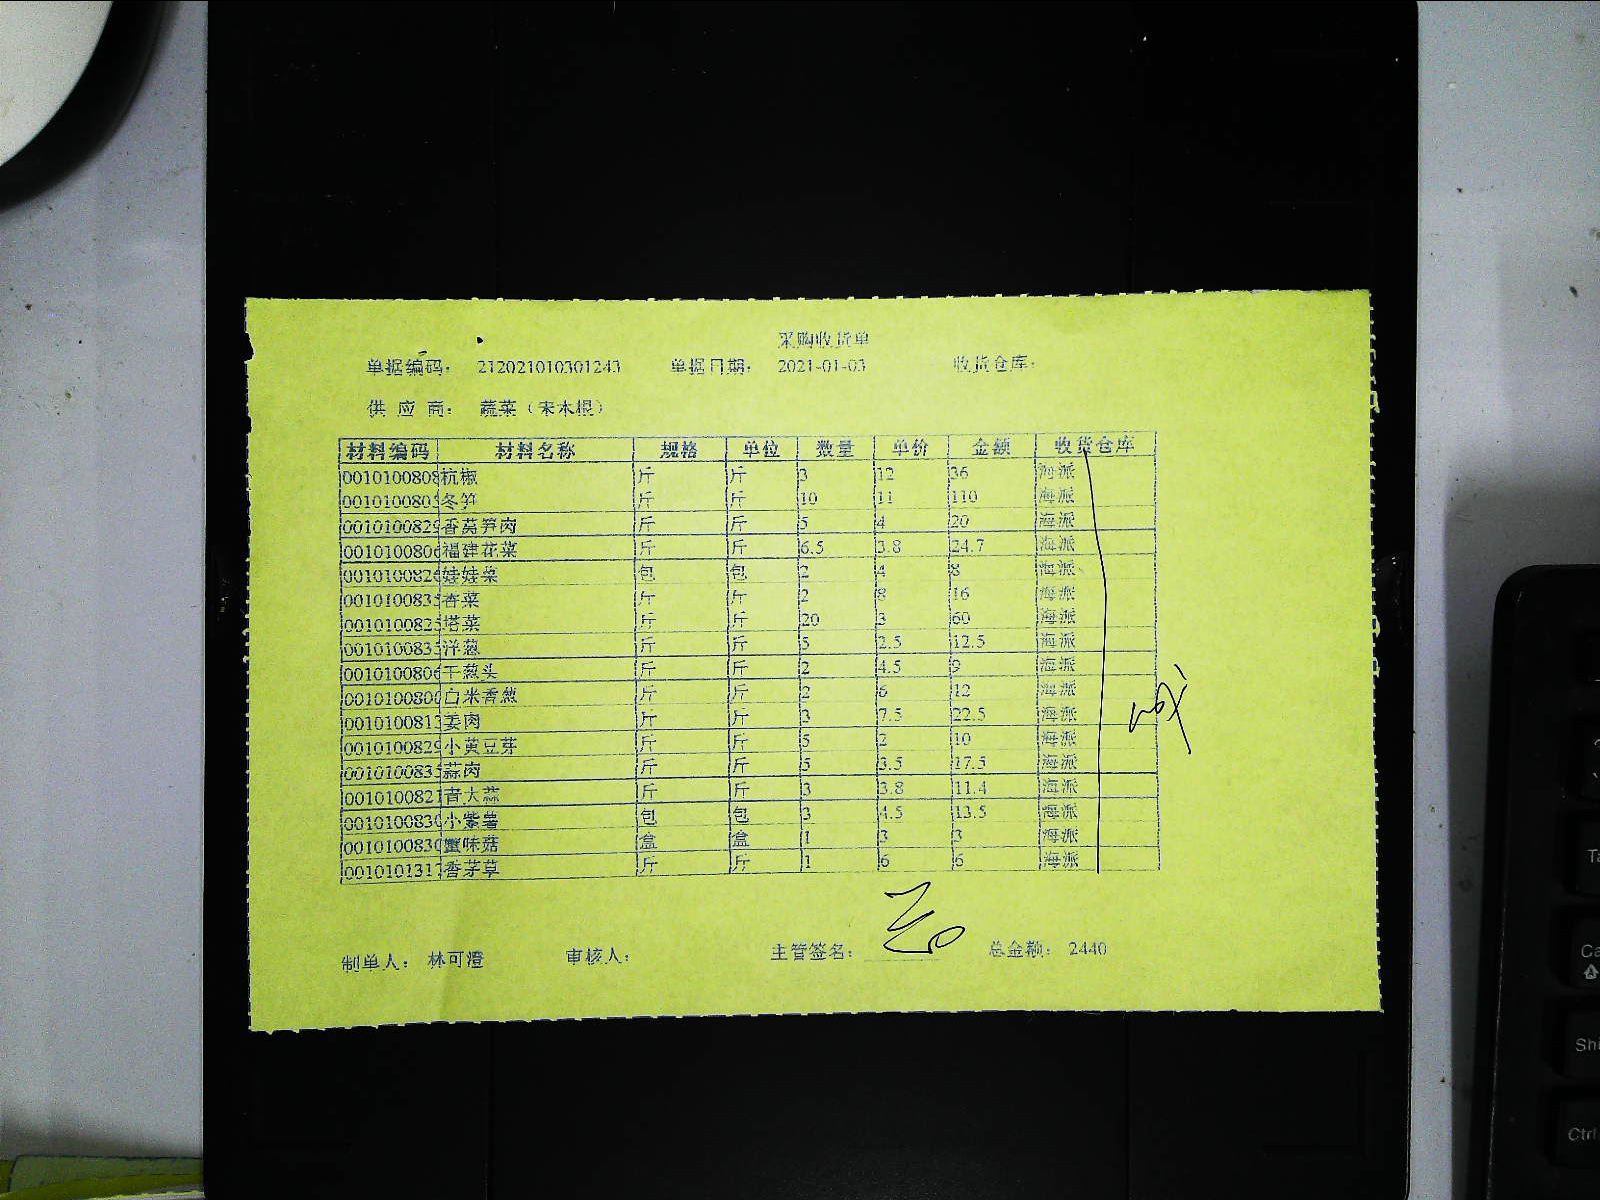 采购收货单
单据编码： 212021010301243 单据日期： 2021-01-03 收货仓库：
供 应 商： 蔬菜（宋木根）
材料编码 材料名称 规格 单位 数量 单价 金额 收货仓库
0010100808 杭椒 斤 斤 3 12 36 海派
001010080 冬笋 斤 斤 10 11 110 海派
0010100829 香莴笋肉 斤 斤 5 4 20 海派
001010080 福建花菜 斤 斤 6.5 3.8 24.7 海派
001010082 娃娃菜 包 包 2 4 8 海派
001010083 香菜 斤 斤 2 8 16 海派
001010082 塔菜 斤 斤 20 3 60 海派
001010083 洋葱 斤 斤 5 2.5 12.5 海派
001010080 干葱头 斤 斤 2 4.5 9 海派
001010080 白米香葱 斤 斤 2 6 12 海派
001010081 姜肉 斤 斤 3 7.5 22.5 海派
001010082 小黄豆芽 斤 斤 5 2 10 海派
001010083 蒜肉 斤 斤 5 3.5 17.5 海派
001010082 青大蒜 斤 斤 3 3.8 11.4 海派
001010083 小紫薯 包 包 3 4.5 13.5 海派
001010083 蟹味菇 盒 盒 1 3 3 海派
001010131 香茅草 斤 斤 1 6 6 海派
制单人： 林可澄 审核人： 主管签名： 总金额： 2440